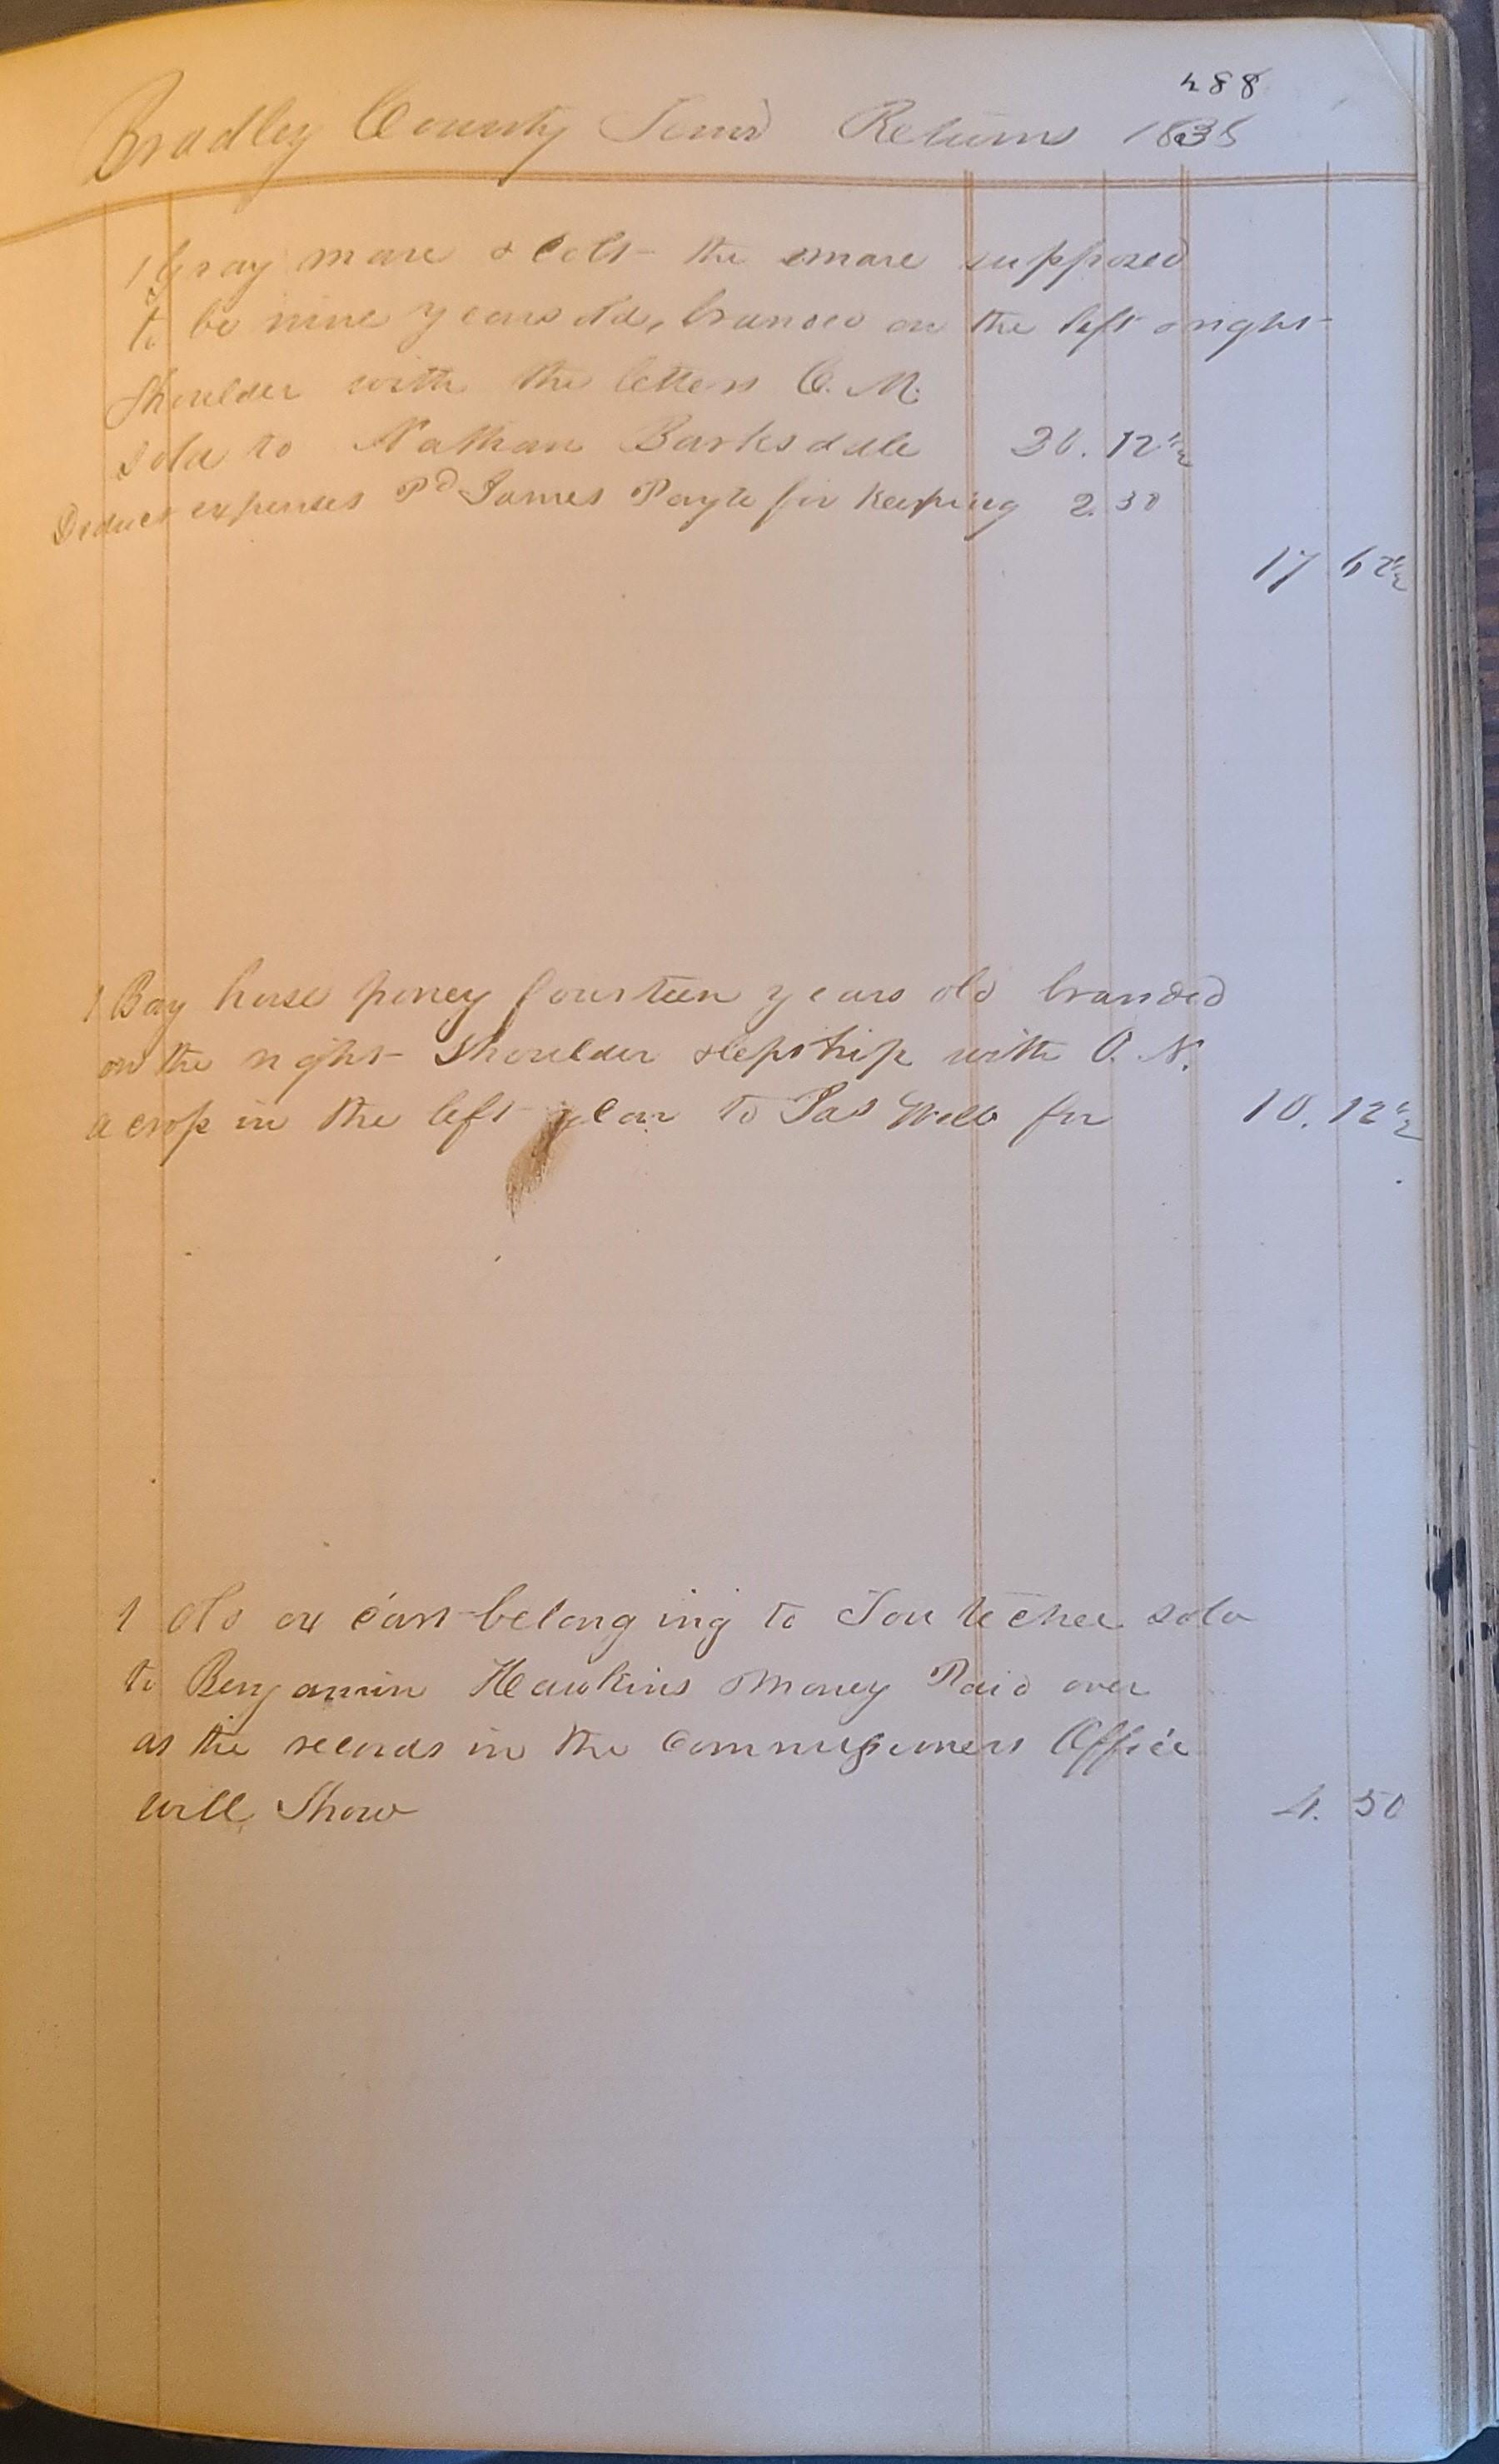 488
Bradley County Tennd Returns 1838
1 Gray mare & Colt the mare supposed
to be nine years old, branded on the left & right
Shoulder with the letters C. M.
sold to Nathan Barksdale 20. 12 1/2
Deduct expenses Pd James Payte for Keeping 2. 50
17 62 1/2
1 Bay horse poney fourteen years old branded
on the right Shoulder & hip with O. N.
a crop in the left ear to Jas for 10. 12 1/2
1 old ox cart belonging to sold
to Benjamin Hawkins Money Paid over
as the records in the Commissioners Office
will Show 4. 50